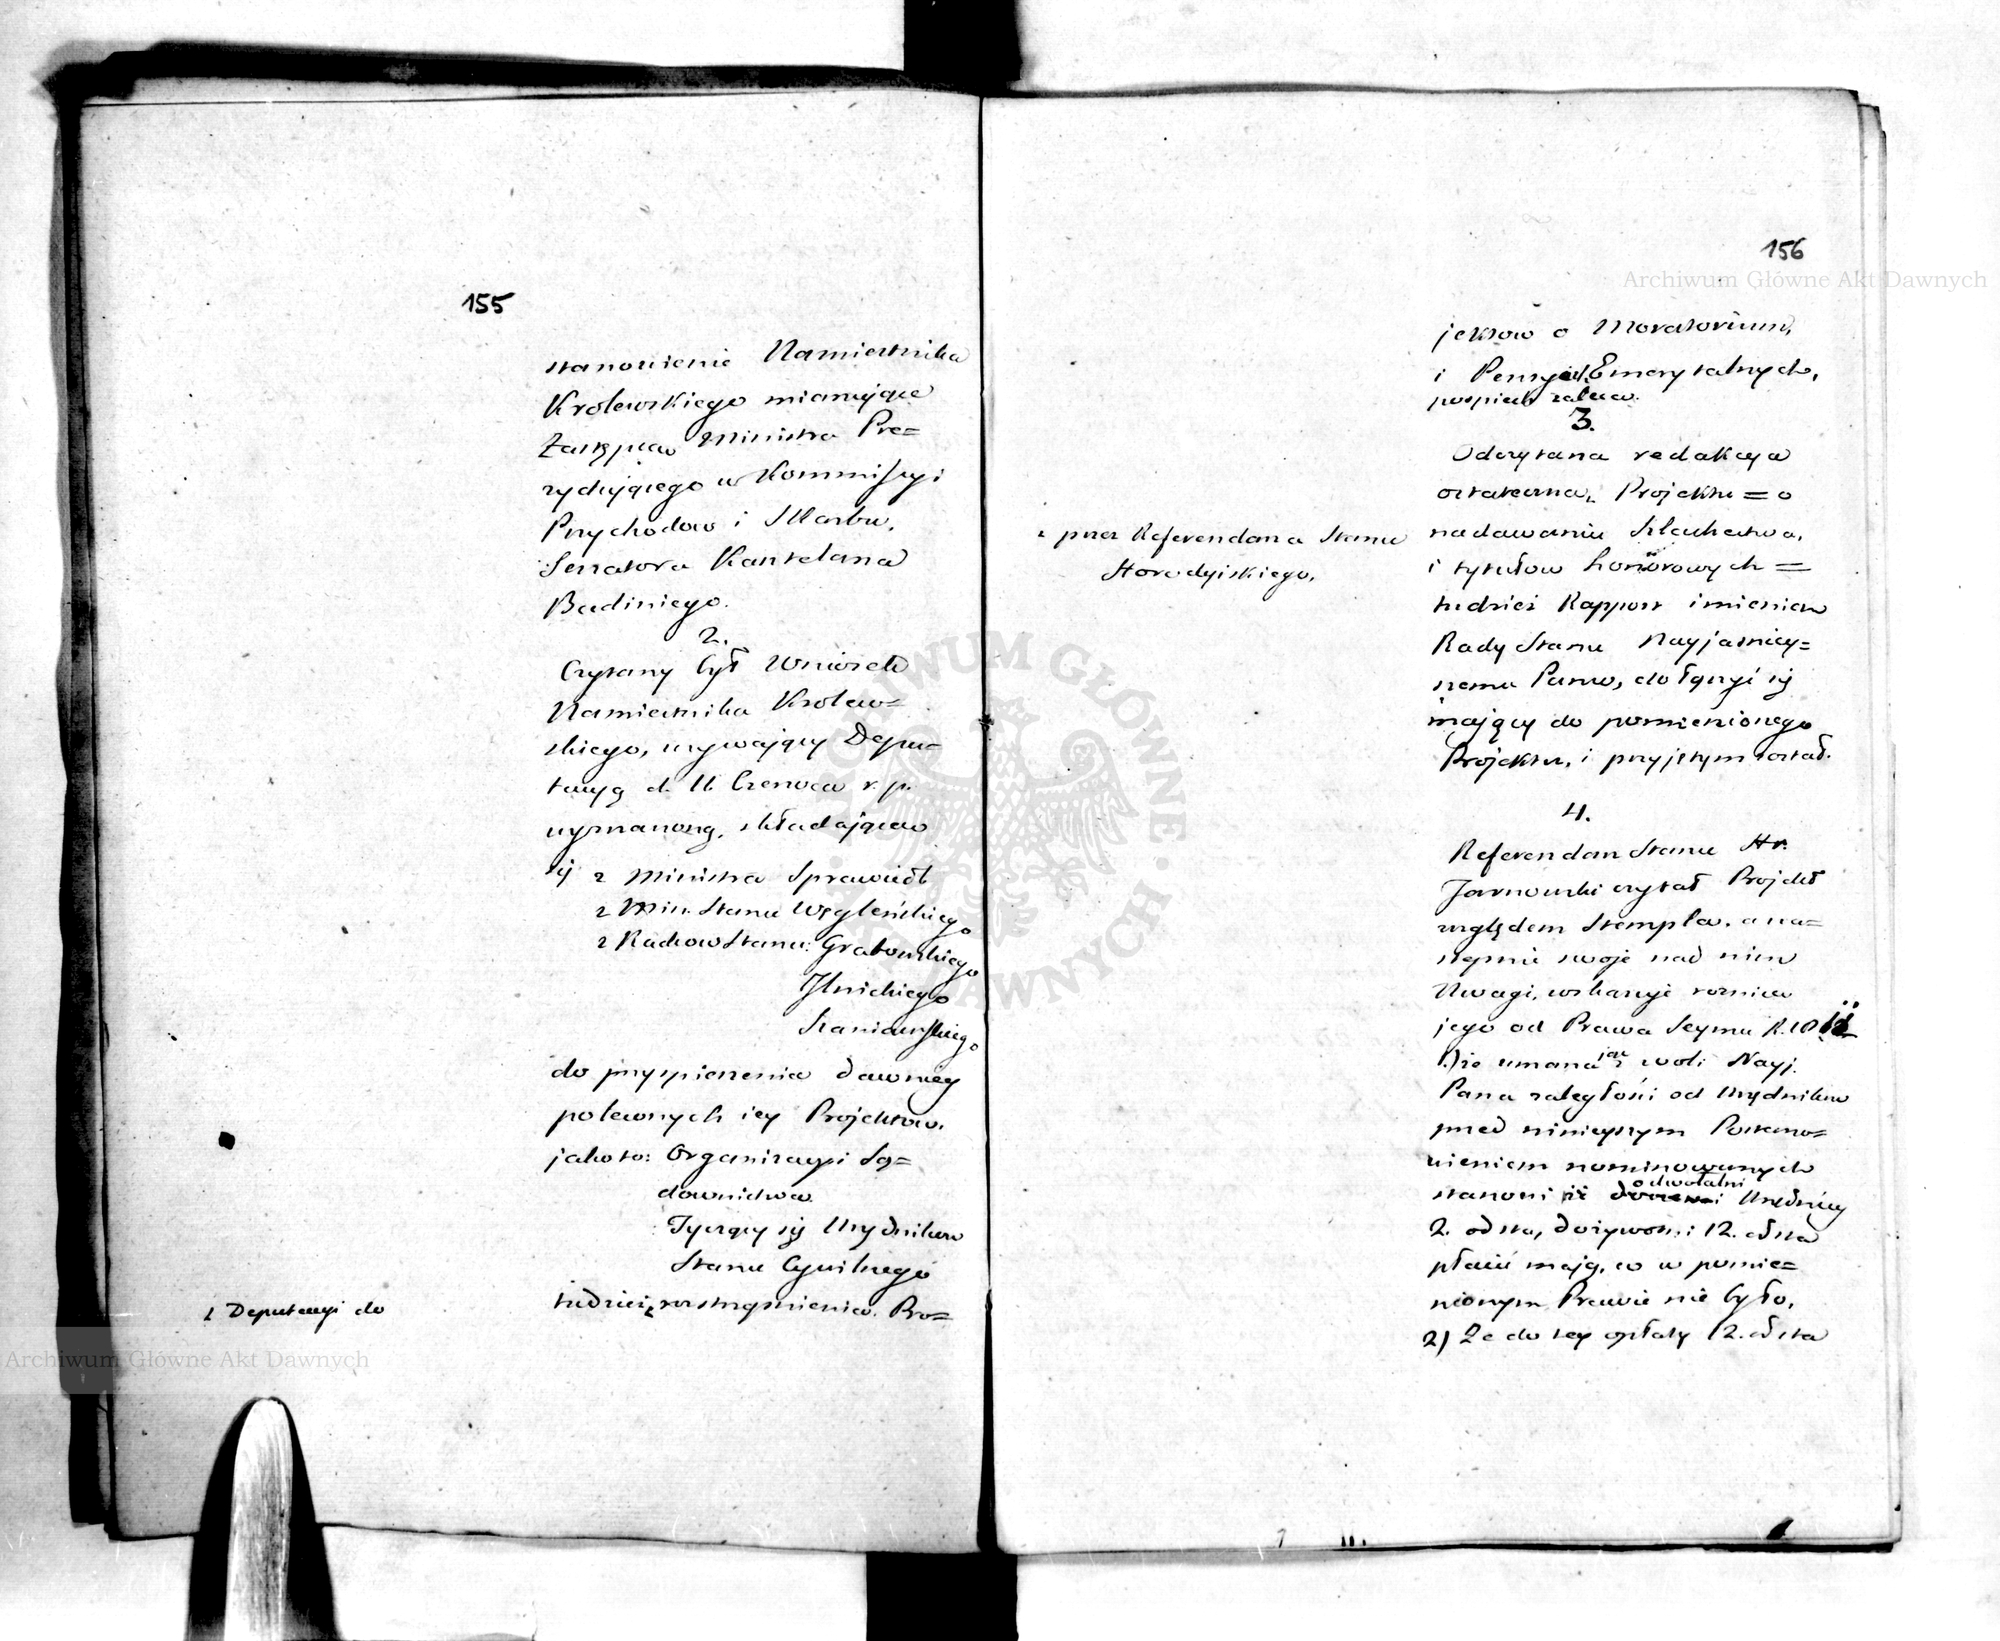 155
stanowienie Namiestnika
Krolewskiego mianujące
Zastępcą Ministra Pre=
zydującego w Kommissyi
Przychodow i Skarbu,
Senatora Kasztelana
Badiniego.
2.
Czytany był Wniosek
Namiestnika Krolew=
skiego, wzywający Depu=
tacyą d. 11. Czerwca r. p.
wyznaczoną, składającą
się z Ministra Sprawiedl
z Min. Stanu Węgleńskiego
z Radcow Stanu: Grabowskiego
Ilnickiego
Staniawskiego
do przyspieszenia dawniey
poleconych iey Projektow.
jako to: Organizacyi Są=
downictwa
Tyczący się Urzędnikow
Stanu Cywilnego
tudzież roztrząśnienia Pro=
Deputacyi do
156
jektow o Moratorium,
i Pensyach Emerytalnych,
pospiech zaleca.
3.
Odczytana redakcya
ostateczna, Projektu = o
nadawaniu Szlachectwa,
i tytułow honorowych =
przez Referendarza Stanu
Horodyiskiego,
tudzież Rapport imieniem
Rady Stanu Nayjaśniey=
szemu Panu, dołączyć się
mający do pomienionego
Projektu, i przyjętym został.
4.
Referendarz Stanu Hr.
Tarnowski czytał Projekt
względem Stempla, a na=
stępnie swoje nad nim
Uwagi, wskazuje roznicę
jego od Prawa Seymu R.
1) że
woli Nayj.
Pana zaległości od Urzędnikow
przed ninieyszym Postano=
wieniem nominowanych
stanowi iż odwołalni Urzędnicy
2. od sta, dożywotni 12. od sta
płacić mają, co w pomie=
nionym Prawie nie było,
2) Ze do tey opłaty 12. od sta
Archiwum Główne Akt Dawnych
Archiwum Główne Akt Dawnych
ARCHIWUM GŁÓWNE AKT DAWNYCH